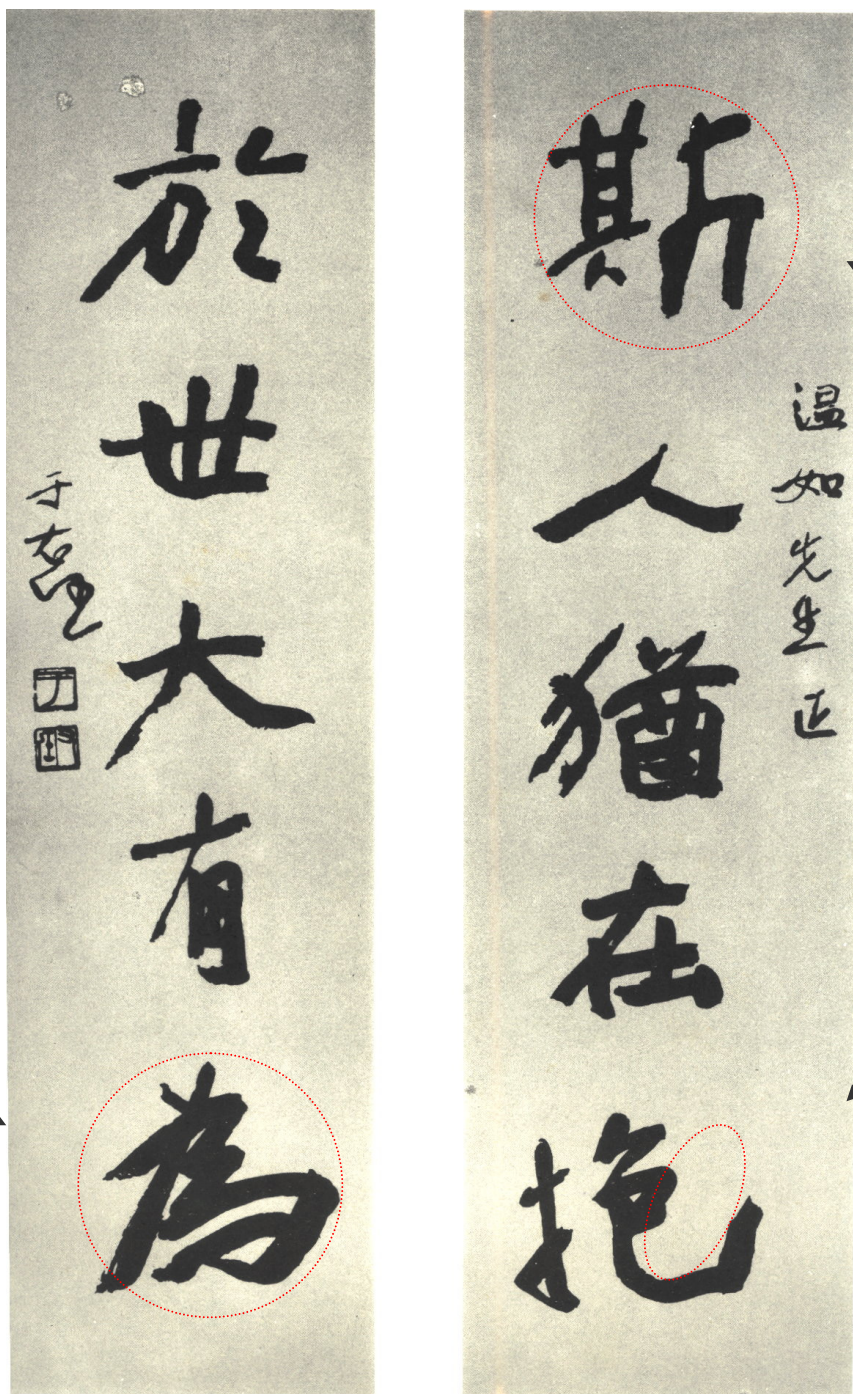 斯人猶在抱
温如先生正
於世大有為
于右任